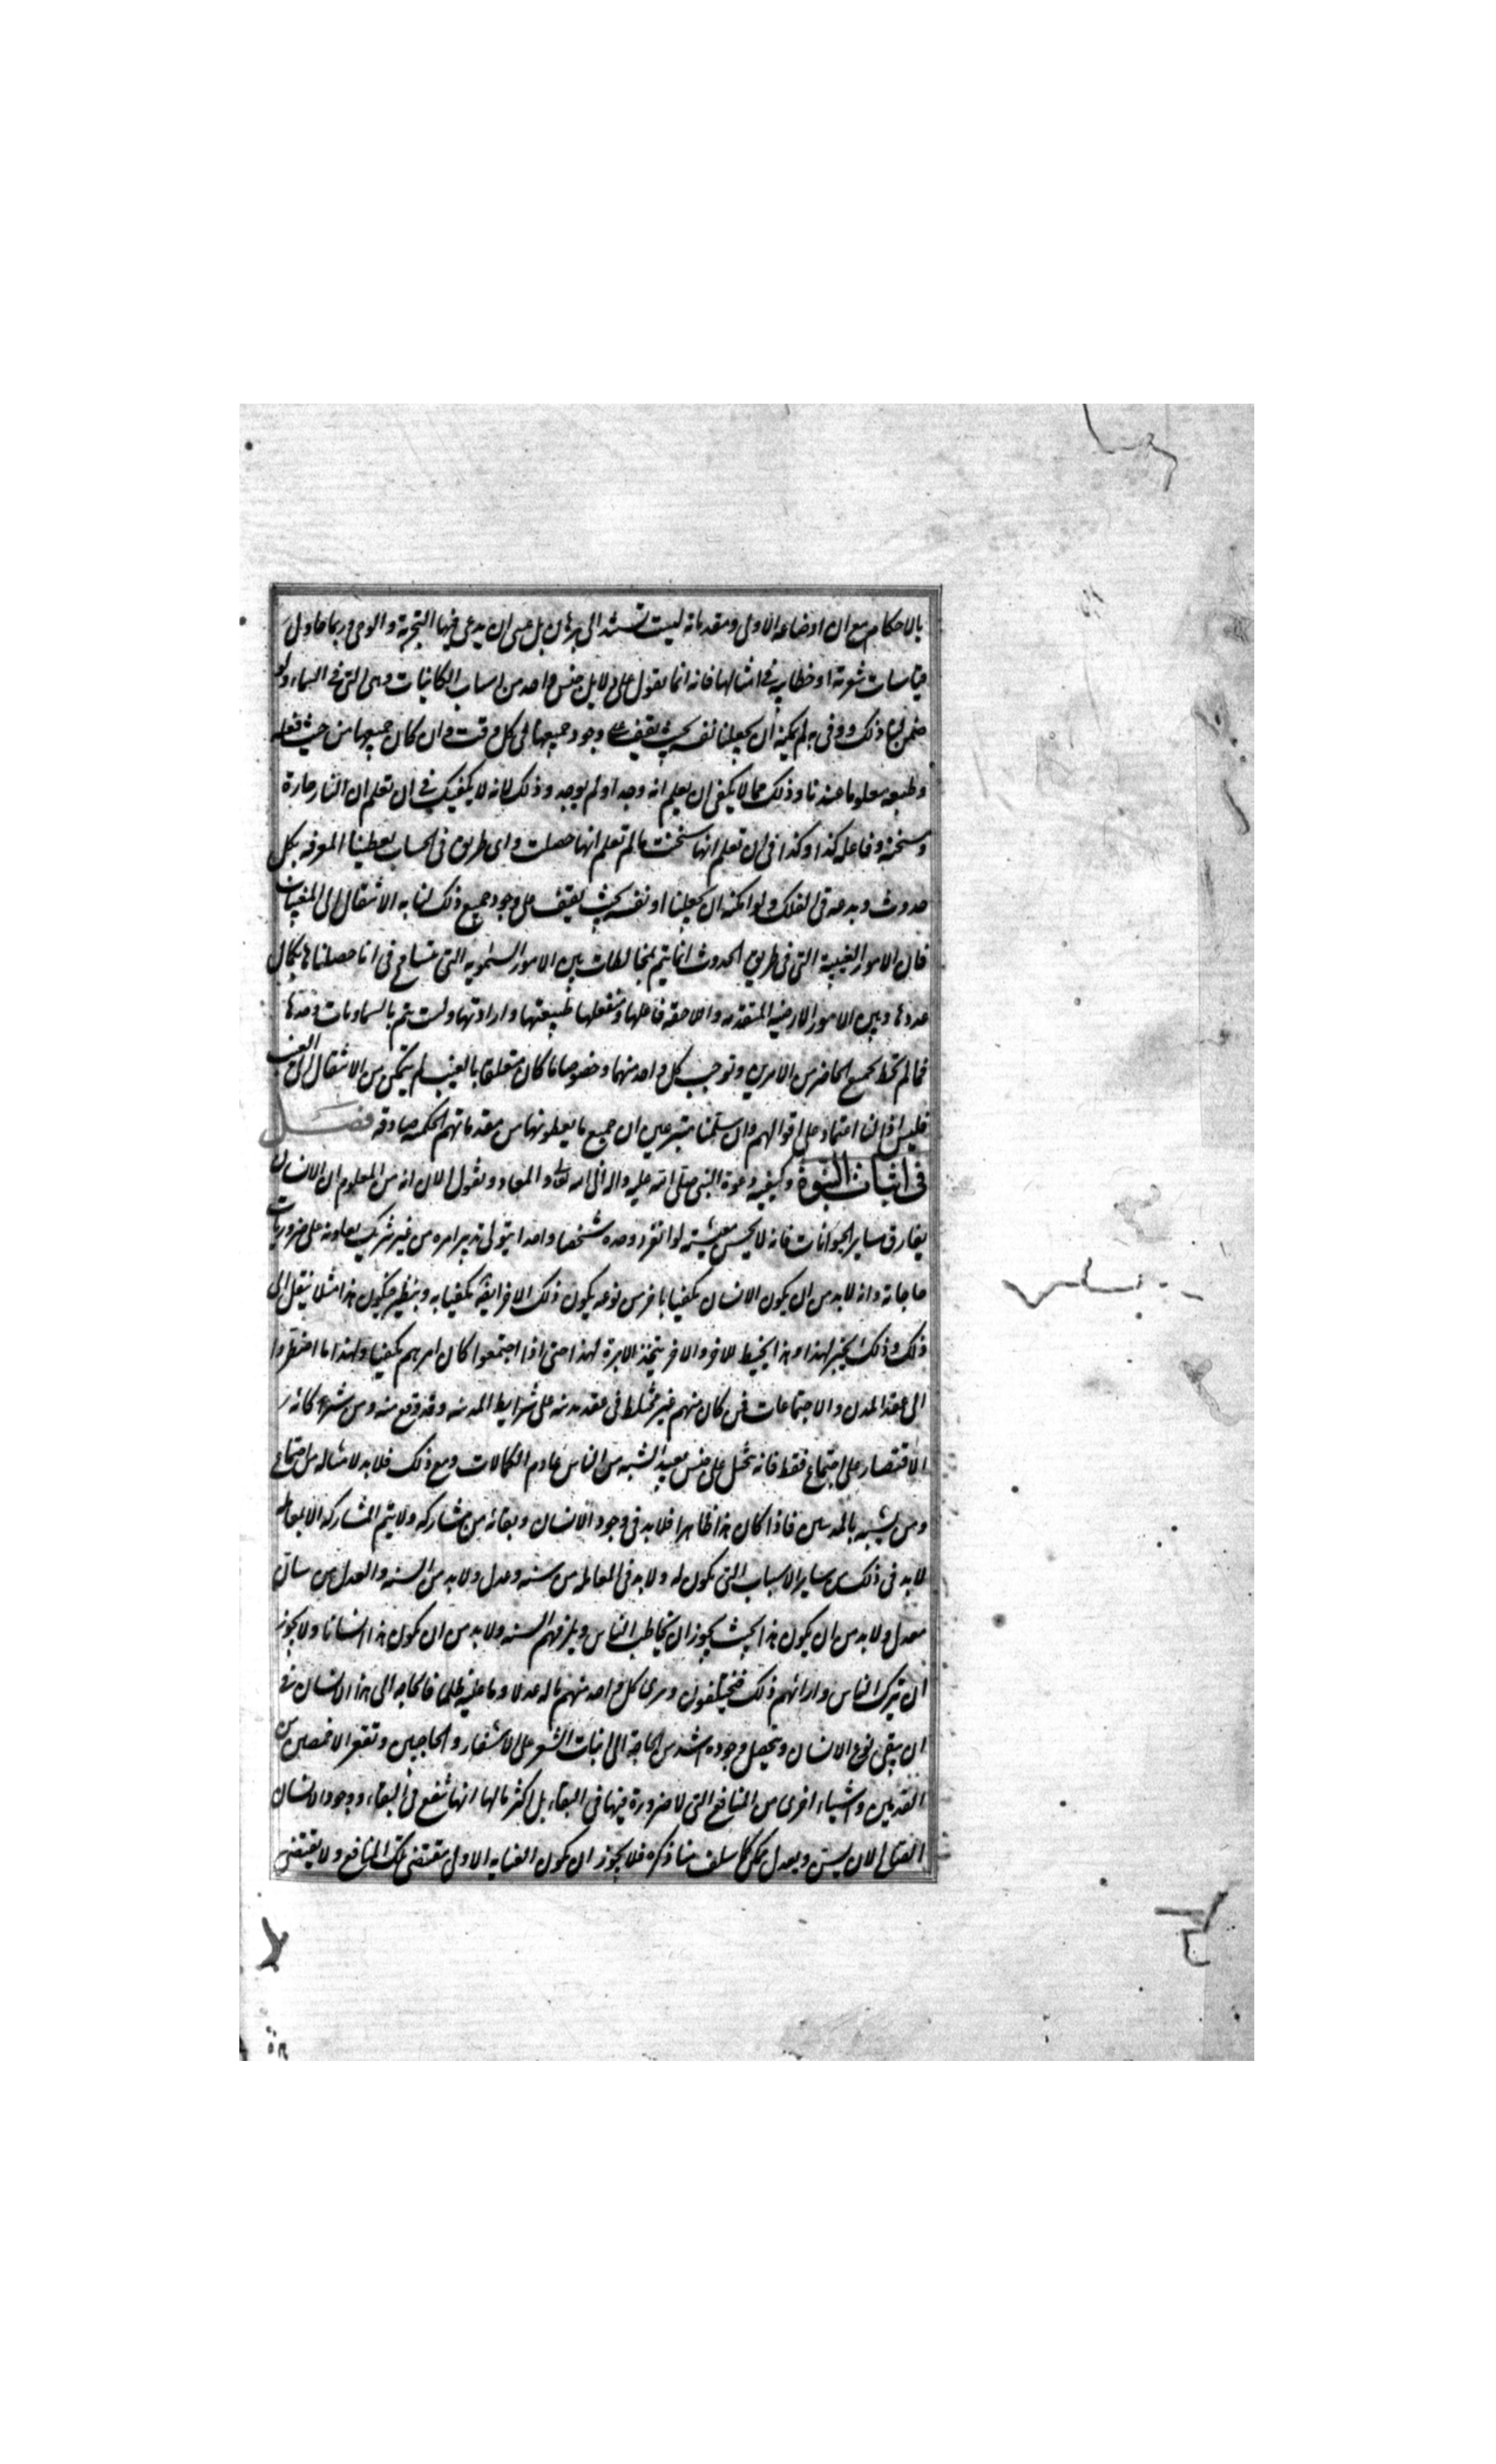 بالاحكام مع ان اوضاعه الاولى ومقدماته ليست تستند الى برهان بل عسى ان يدعى فيها التجربة والوحى وربما حاول
قياسات شعرية او خطابية فى اثباتها فانه انما يعول على دلايل جنس واحد من اسباب الكاينات وهى التى فى السماء ولو
ضمن لنا ذلك ووفى به لم يمكنه ان يجعلنا نفسه بحيث نقف على وجود جميعها فى كل وقت وان كان جميعها من حيث فعله
وطبعه معلوما عندنا وذلك مما لا يكفى ان يعلم انه وجد او لم يوجد وذلك لانه لا يكفيك فى ان تعلم ان النار حارة
ومسخنة وفاعله كذا وكذا فى ان تعلم انها سخنت ما لم تعلم انها حصلت واى طريق فى الحساب يعطينا المعرفه بكل
حدوث وبدعه فى الفلك ولو امكنه ان يجعلنا او نفسه بحيث يقف على وجود جميع ذلك لنا به الانتقال الى المغيبات
فان الامور الغيبية التى فى طريق الحدوث انما يتم بمخالطات بين الامور السماوية التى نتسامح فى انا حصلناها بكمال
عددها وبين الامور الارضيه المتقدمه واللاحقه فاعلها ومنفعلها طبيعتها وارادتها وليست يتم بالسماويات وحدها
فما لم يحط بجميع الحاضر من الامرين وتوجب كل واحد منهما وخصوصا ما كان متعلقا بالغيب لم يتمكن من الانتقال الى الغيب
فليس اذا لنا اعتماد على اقوالهم وان سلمنا متبرعين ان جميع ما يعطونها من مقدماتهم الحكميه صادقه فصل
فى اثبات النبوة وكيفيه دعوة النبى صلى الله عليه واله الى الله تعالى والمعاد ونقول الان انه من المعلوم ان الانسان
يفارق ساير الحيوانات فانه لا يحسن معيشته لو انفرد وحده شخصا واحدا يتولى تدبير امره من غير شريك يعاونه على ضروريات
حاجاته وانه لا بد من ان يكون الانسان مكفيا باخر من نوعه يكون ذلك الاخر ايضا مكفيا به وبنظيره فيكون هذا مثلا ينقل الى
ذلك وذلك يخبز لهذا وهذا يخيط للاخر والاخر يتخذ الابرة لهذا حتى اذا اجتمعوا كان امرهم مكفيا ولهذا ما اضطروا
الى عقد المدن والاجتماعات فمن كان منهم غير مختلط فى عقد مدينته على شرايط المدينه وقد وقع منه ومن شركائه
الاقتصار على اجتماع فقط فانه يتحيل على جنس بعيد الشبه من الناس عادم الكمالات ومع ذلك فلا بد لامثاله من اجتماع
ومن تشبه بالمدنيين فاذا كان هذا ظاهرا فلا بد فى وجود الانسان وبقائه من مشاركه ولا يتم المشاركه الا بمعامله
لا بد فى ذلك من ساير الاسباب التى يكون له ولا بد فى المعامله من سنه وعدل ولا بد من السنه والعدل من سان
معدل ولا بد من ان يكون هذا بحيث يجوز ان يخاطب الناس ويلزمهم السنه ولا بد من ان يكون هذا انسانا ولا يجوز
ان يترك الناس واراءهم ذلك فيختلفون ويرى كل واحد منهم ما له عدلا وما عليه ظلما فالحاجه الى هذا الانسان فى
ان يبقى نوع الانسان ويحصل وجوده اشد من الحاجة الى انبات الشعر على الاشفار والحاجبين وتقعر الاخمصين من
القدمين واشياء اخرى من المنافع التى لا ضرورة فيها فى البقاء بل اكثر ما لها انها تنفع فى البقاء ووجود الانسان
الصالح لان يسن ويعدل ممكن كما سلف منا ذكره فلا يجوز ان يكون العنايه الاولى تقتضى تلك المنافع ولا يقتضى